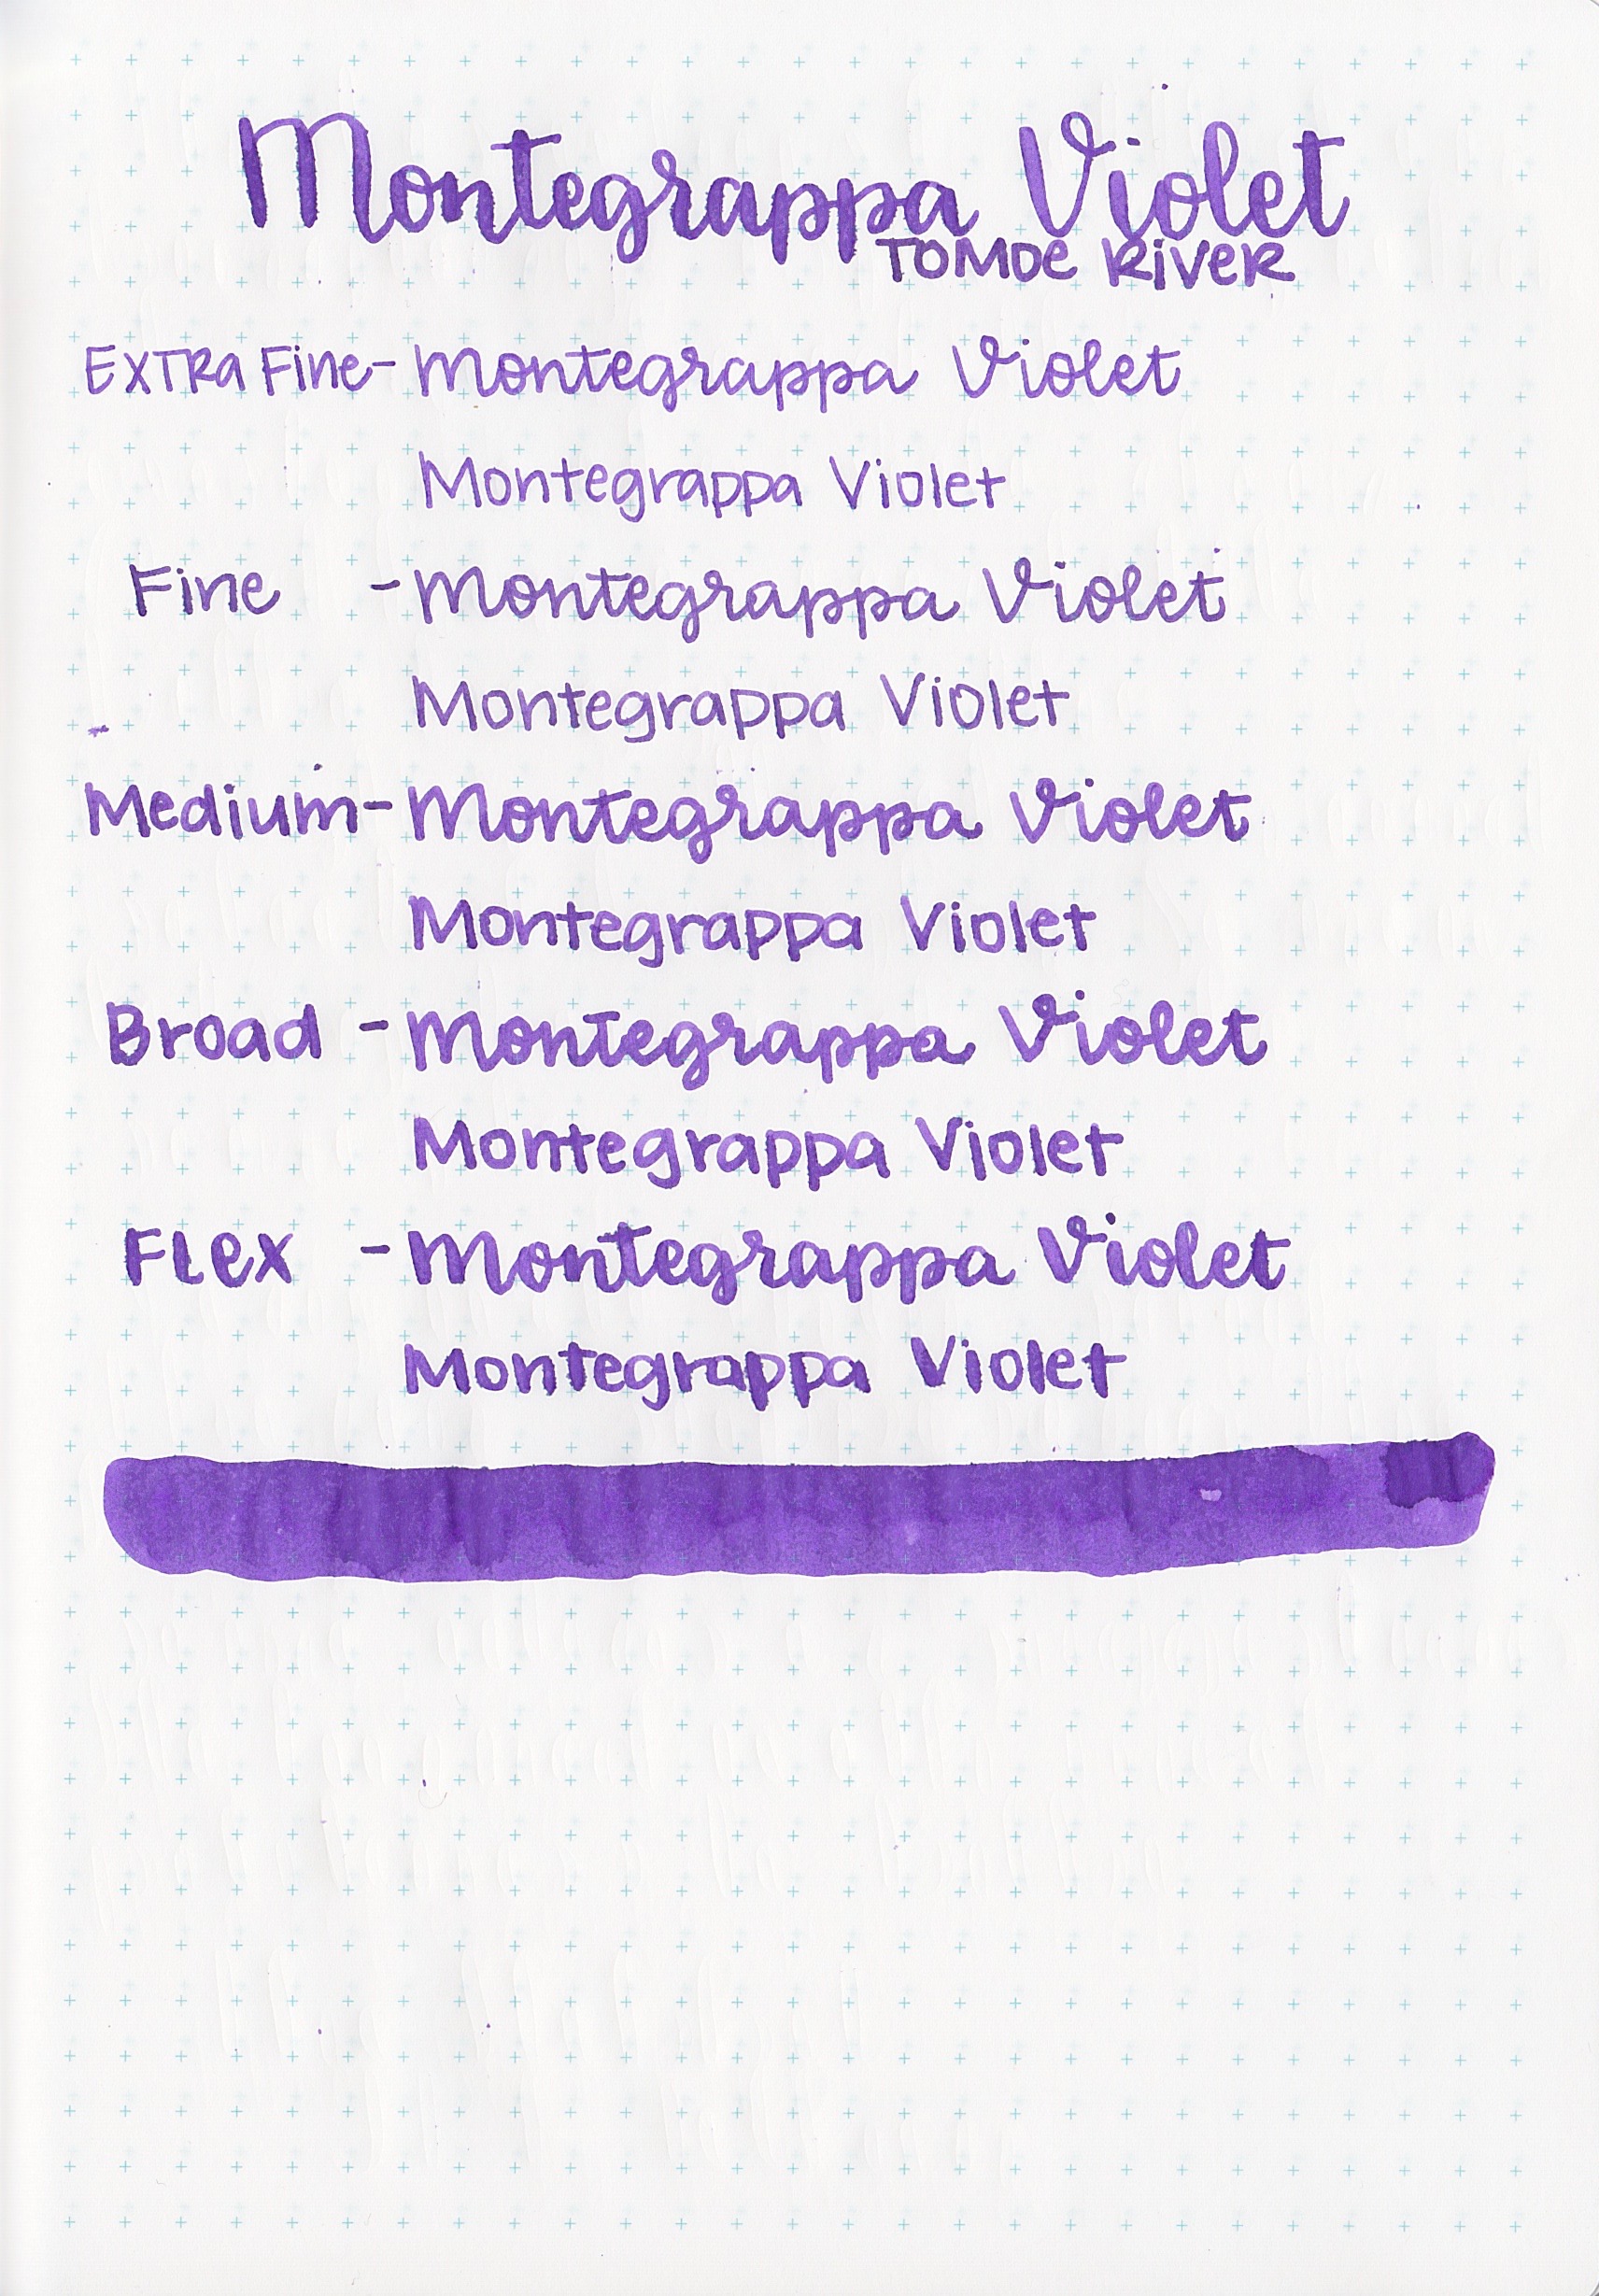 Montegrappa Violet
TOMOE RIVER
EXTRA Fine - Montegrappa Violet
Montegrappa Violet
Fine - Montegrappa Violet
Montegrappa Violet
Medium - Montegrappa Violet
Montegrappa Violet
Broad - Montegrappa Violet
Montegrappa Violet
FLex - Montegrappa Violet
Montegrappa Violet